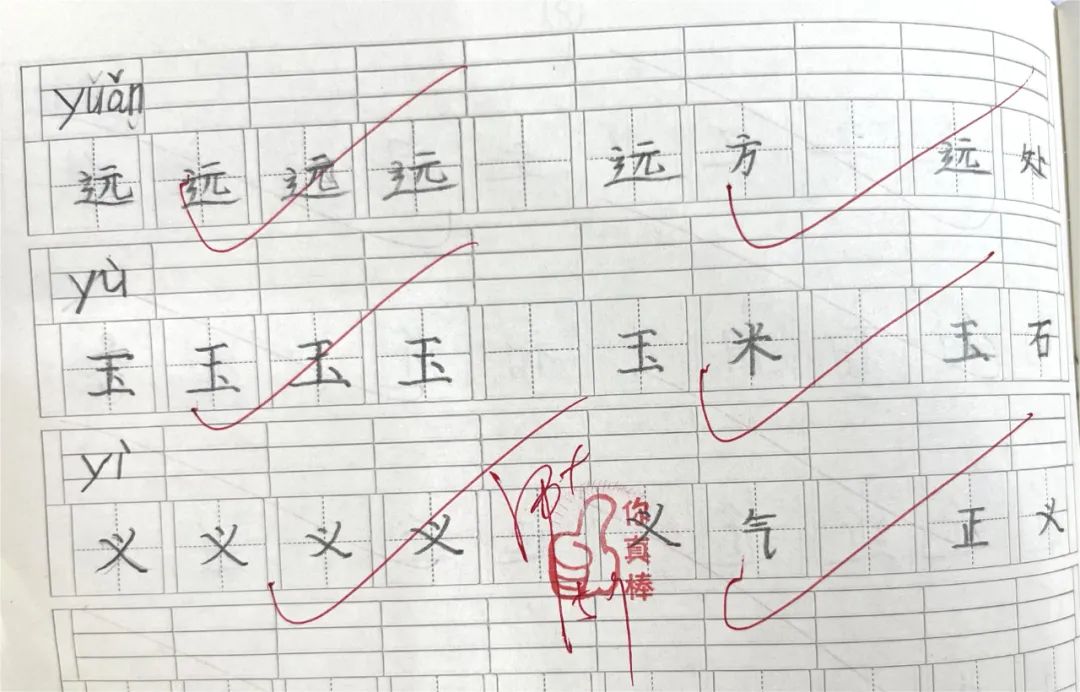 yuǎn
远 远 远 远 远 方 远 处
yù
玉 玉 玉 玉 玉 米 玉 石
yì
义 义 义 义 义 气 正 义
你真棒